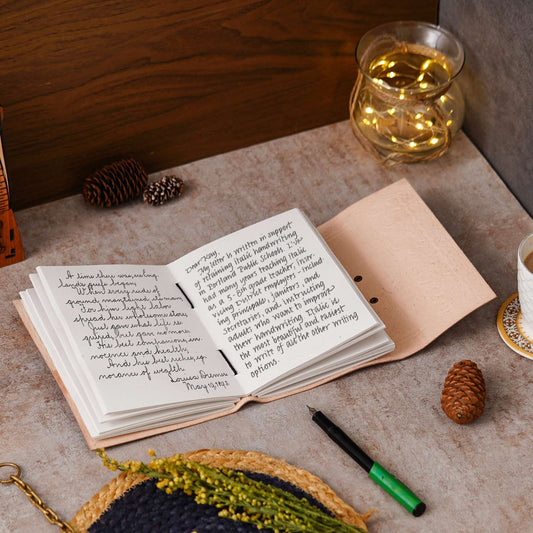 A time there was, ere
land's griefs began,
When every rood of
ground maintained its man;
For him light labor
spread her wholesome store,
Just gave what life re
quired, but gave no more:
His best companions, in-
nocence and health,
And his best riches, ig-
norance of wealth.
May 19,
Dear Kay,
My letter is written in support
of retaining italic handwriting
in Portland Public Schools. I've
had many years teaching italic
as a 5-8th grade teacher, inser-
vicing District employers - includ-
ing principals, janitors, and
secretaries, and instructing
adults who want to improve
their handwriting. Italic is
the most beautiful and easiest
to write of all the other writing
options.